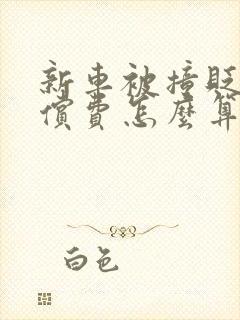 新車被撞貶
償費怎麼算
白色